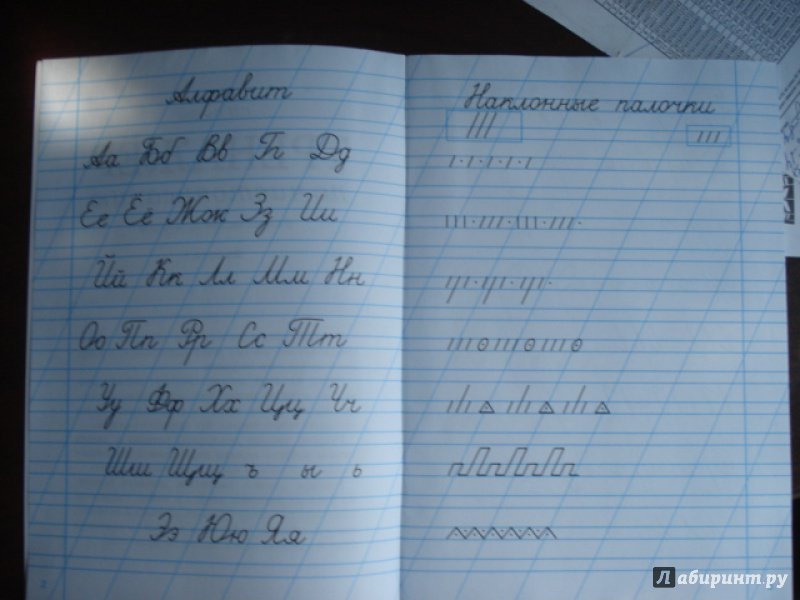 Алфавит
Аа Бб Вв Гг Дд
Ее Ёё Жж Зз Ии
Йй Кк Лл Мм Нн
Оо Пп Рр Сс Тт
Уу Фф Хх Цц Чч
Шш Щщ ъ ы ь
Ээ Юю Яя
2
Наклонные палочки
Лабиринт.ру